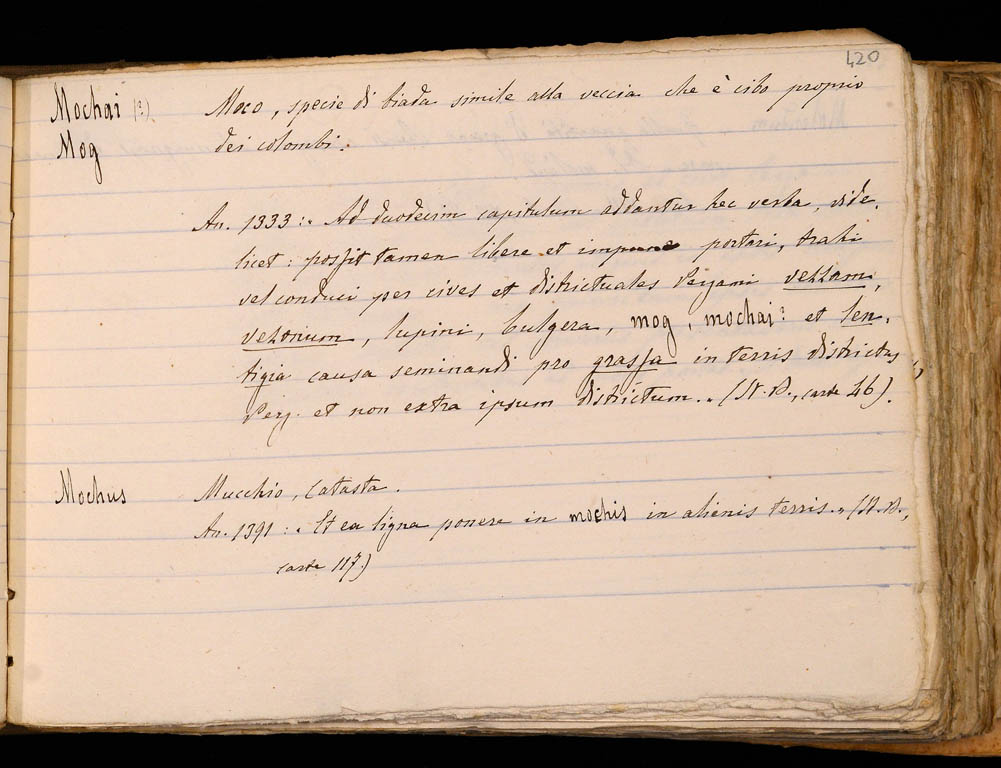 420
Mochai (?) Moco, specie di biada simile alla veccia che è cibo proprio
Mog dei colombi.
An. 1333: „ Ad duodecim capitulum addantur hec verba, vide,
licet: possit tamen libere et impune portari, trahi
vel conduci per cives et districtuales Pergami vezzam,
vezorium, lupini, bulgera, mog, mochai? et len,
tigia causa seminandi pro grassa in terris districtus
Perg. et non extra ipsum districtum. „ (N. B., carte 46).
Mochus Mucchio, Catasta.
An. 1391: „ Et ea ligna ponere in mochis in alienis terris. „ (N. B.,
carte 117.)